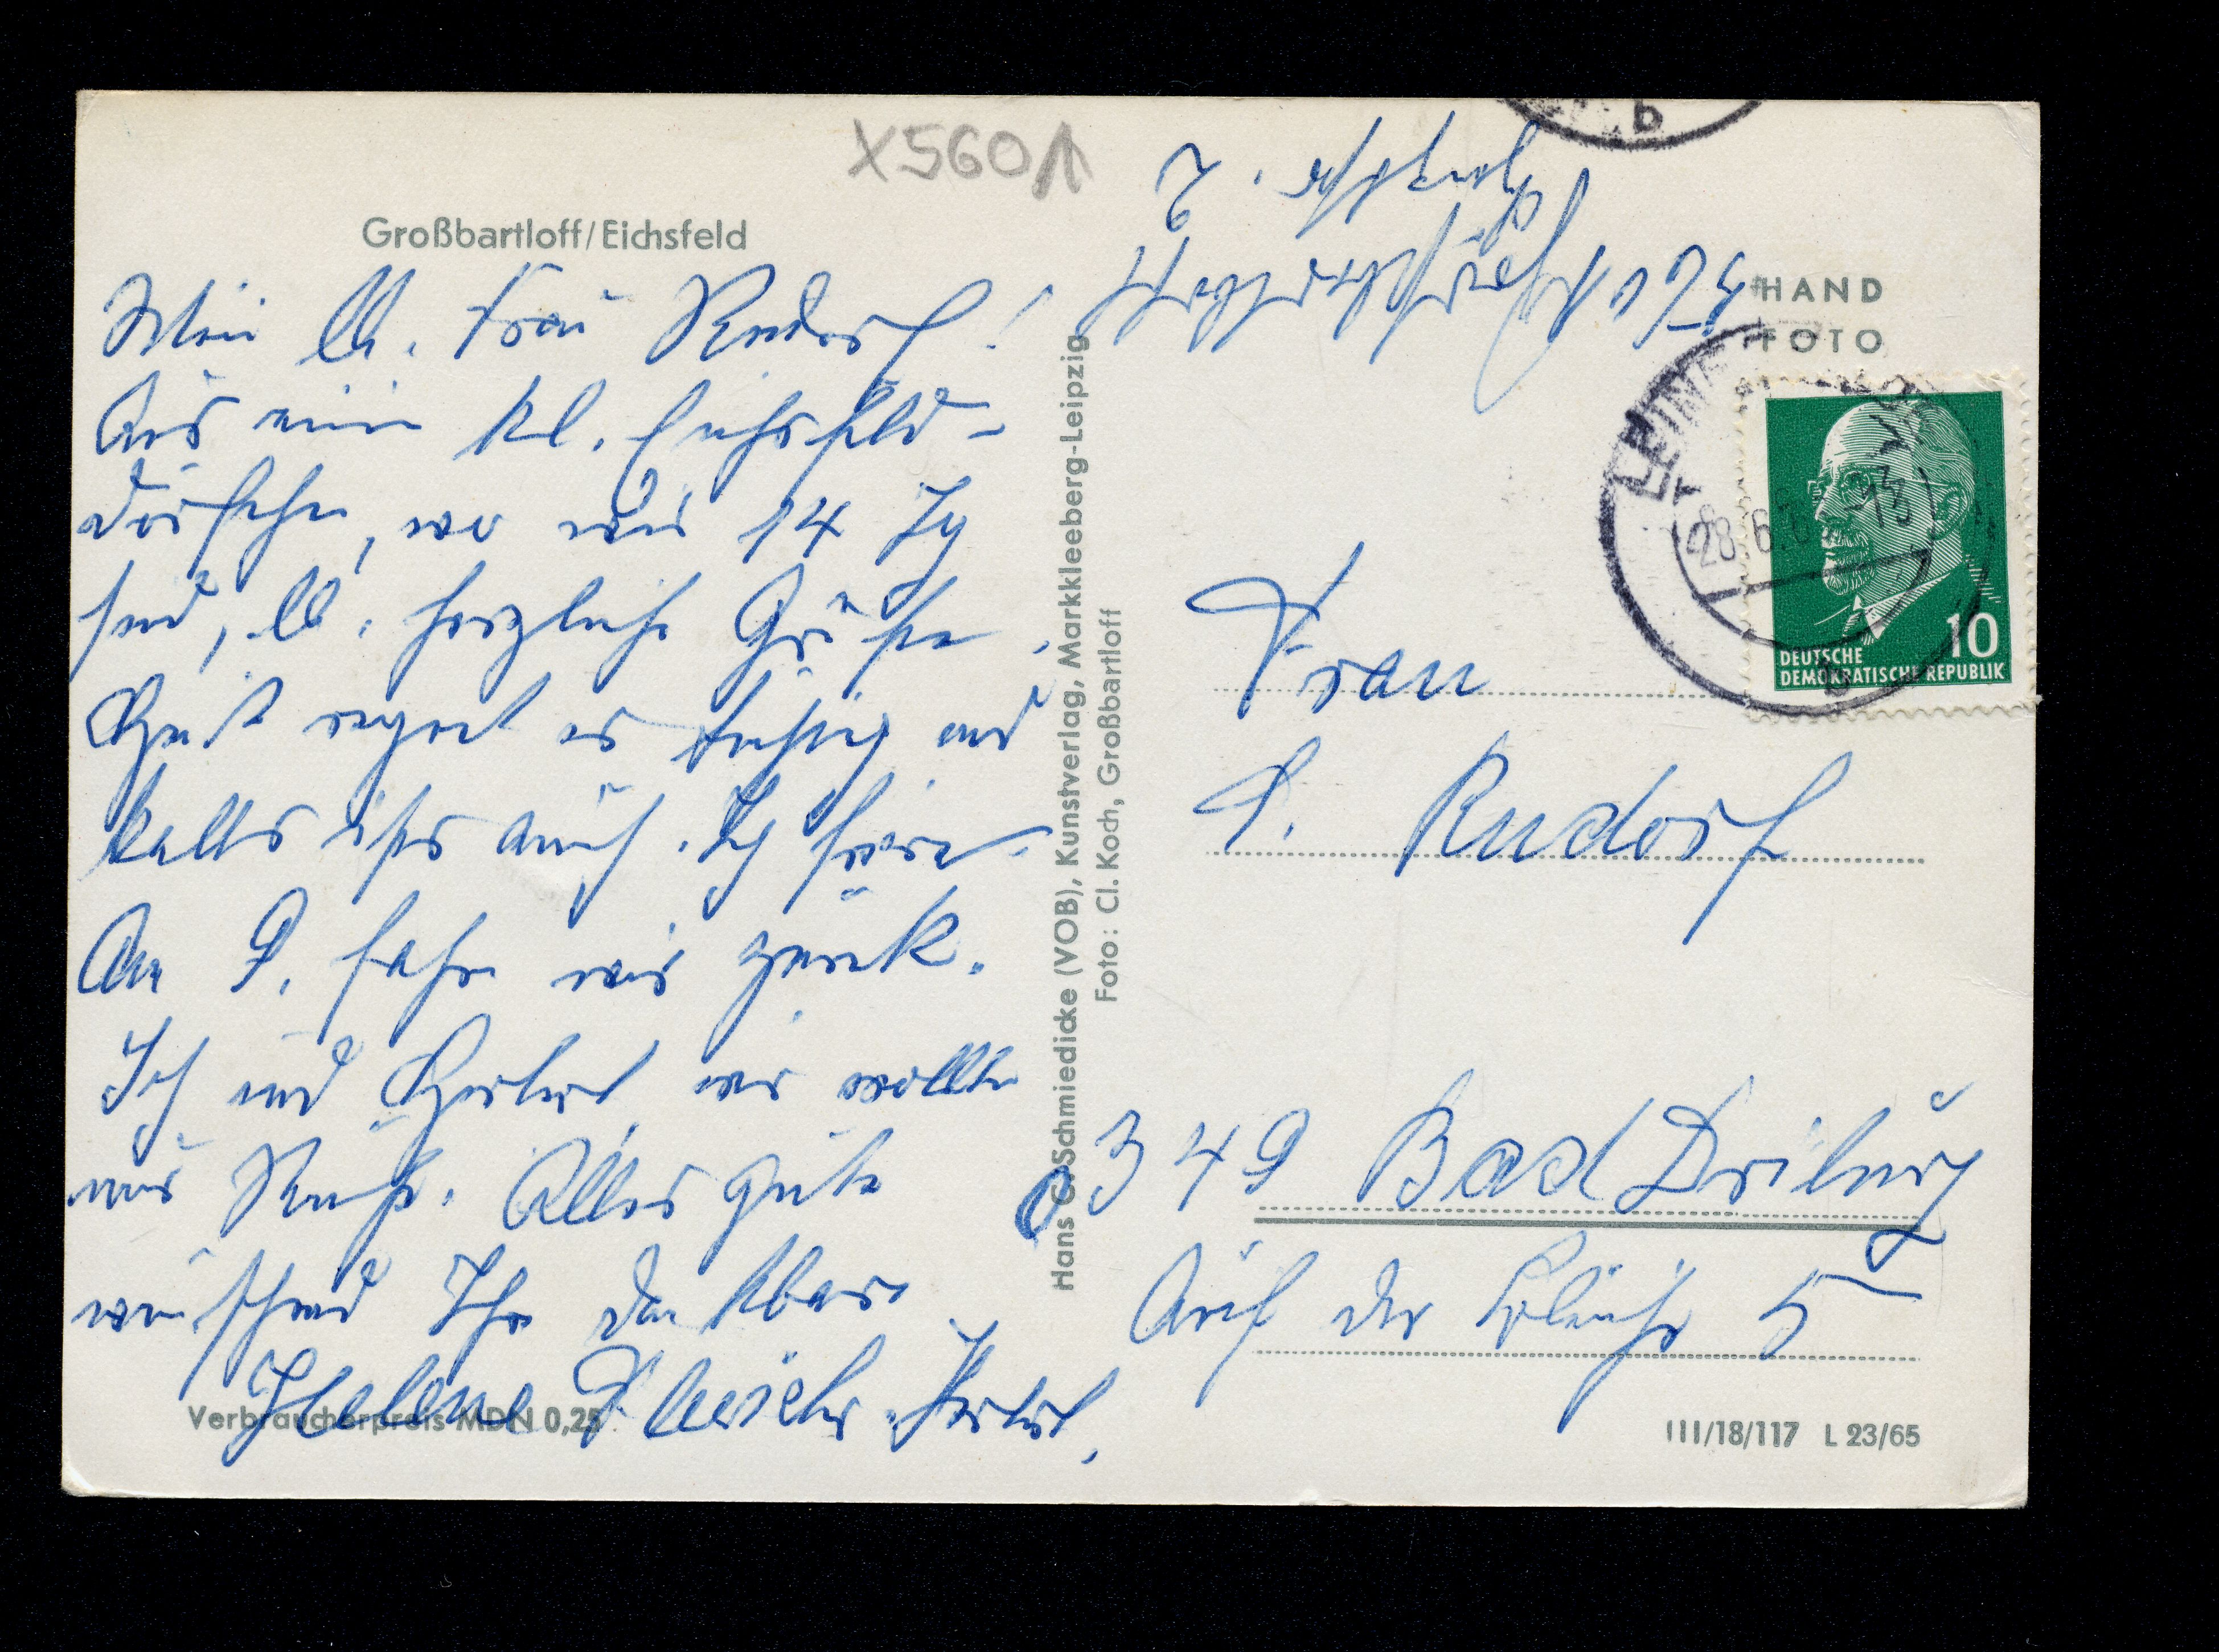 X5601
Großbartloff/Eichsfeld
Mein lb. Frau Rudorf!
Aus einem kl. Eichsfeld-
dörfchen, wo wir 14 Tg
sind, lb. herzliche Grüße.
Heut regnet es tüchtig und
kalt ists auch. Ich friere.
Am 9. fahren wir zurück.
Ich und Herbert, wir wollten
nur Ruhe. Alles Gute
wünschend Ihre dankbare
Helene Herbert.
Verbraucherpreis MDN 0,25
Hans C. Schmiedicke (VOB), Kunstverlag, Markkleeberg-Leipzig
Foto: Cl. Koch, Großbartloff
5601 Großbartloff
2
HAND
FOTO
28.6. -18
b
b
10
DEUTSCHE
DEMOKRATISCHE REPUBLIK
Frau
Rudorf
349 Bad Driburg
Auf der 5
III/18/117 L 23/65